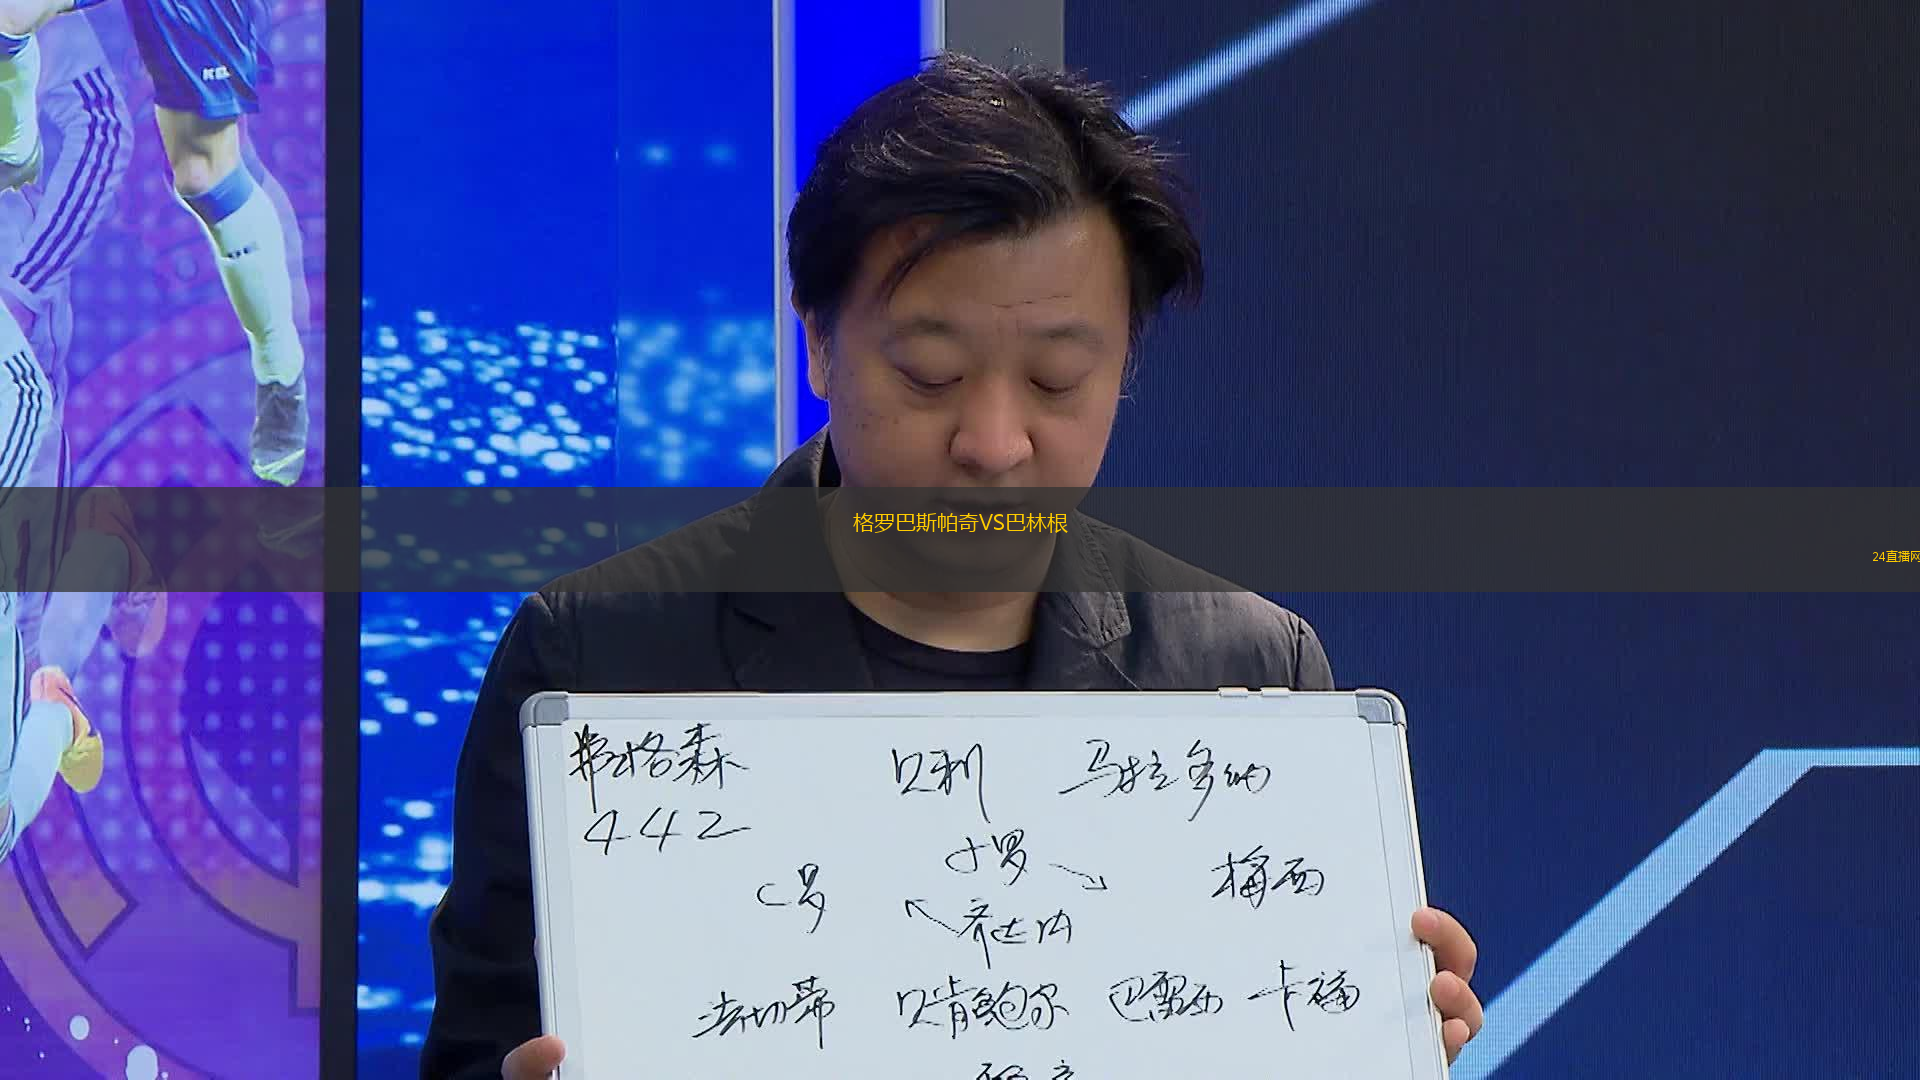 格罗巴斯帕奇VS巴林根
24直播网
弗格森 贝利 马拉多纳
442
小罗
C罗 梅西
齐达内
法切蒂 贝肯鲍尔 巴雷西 卡福